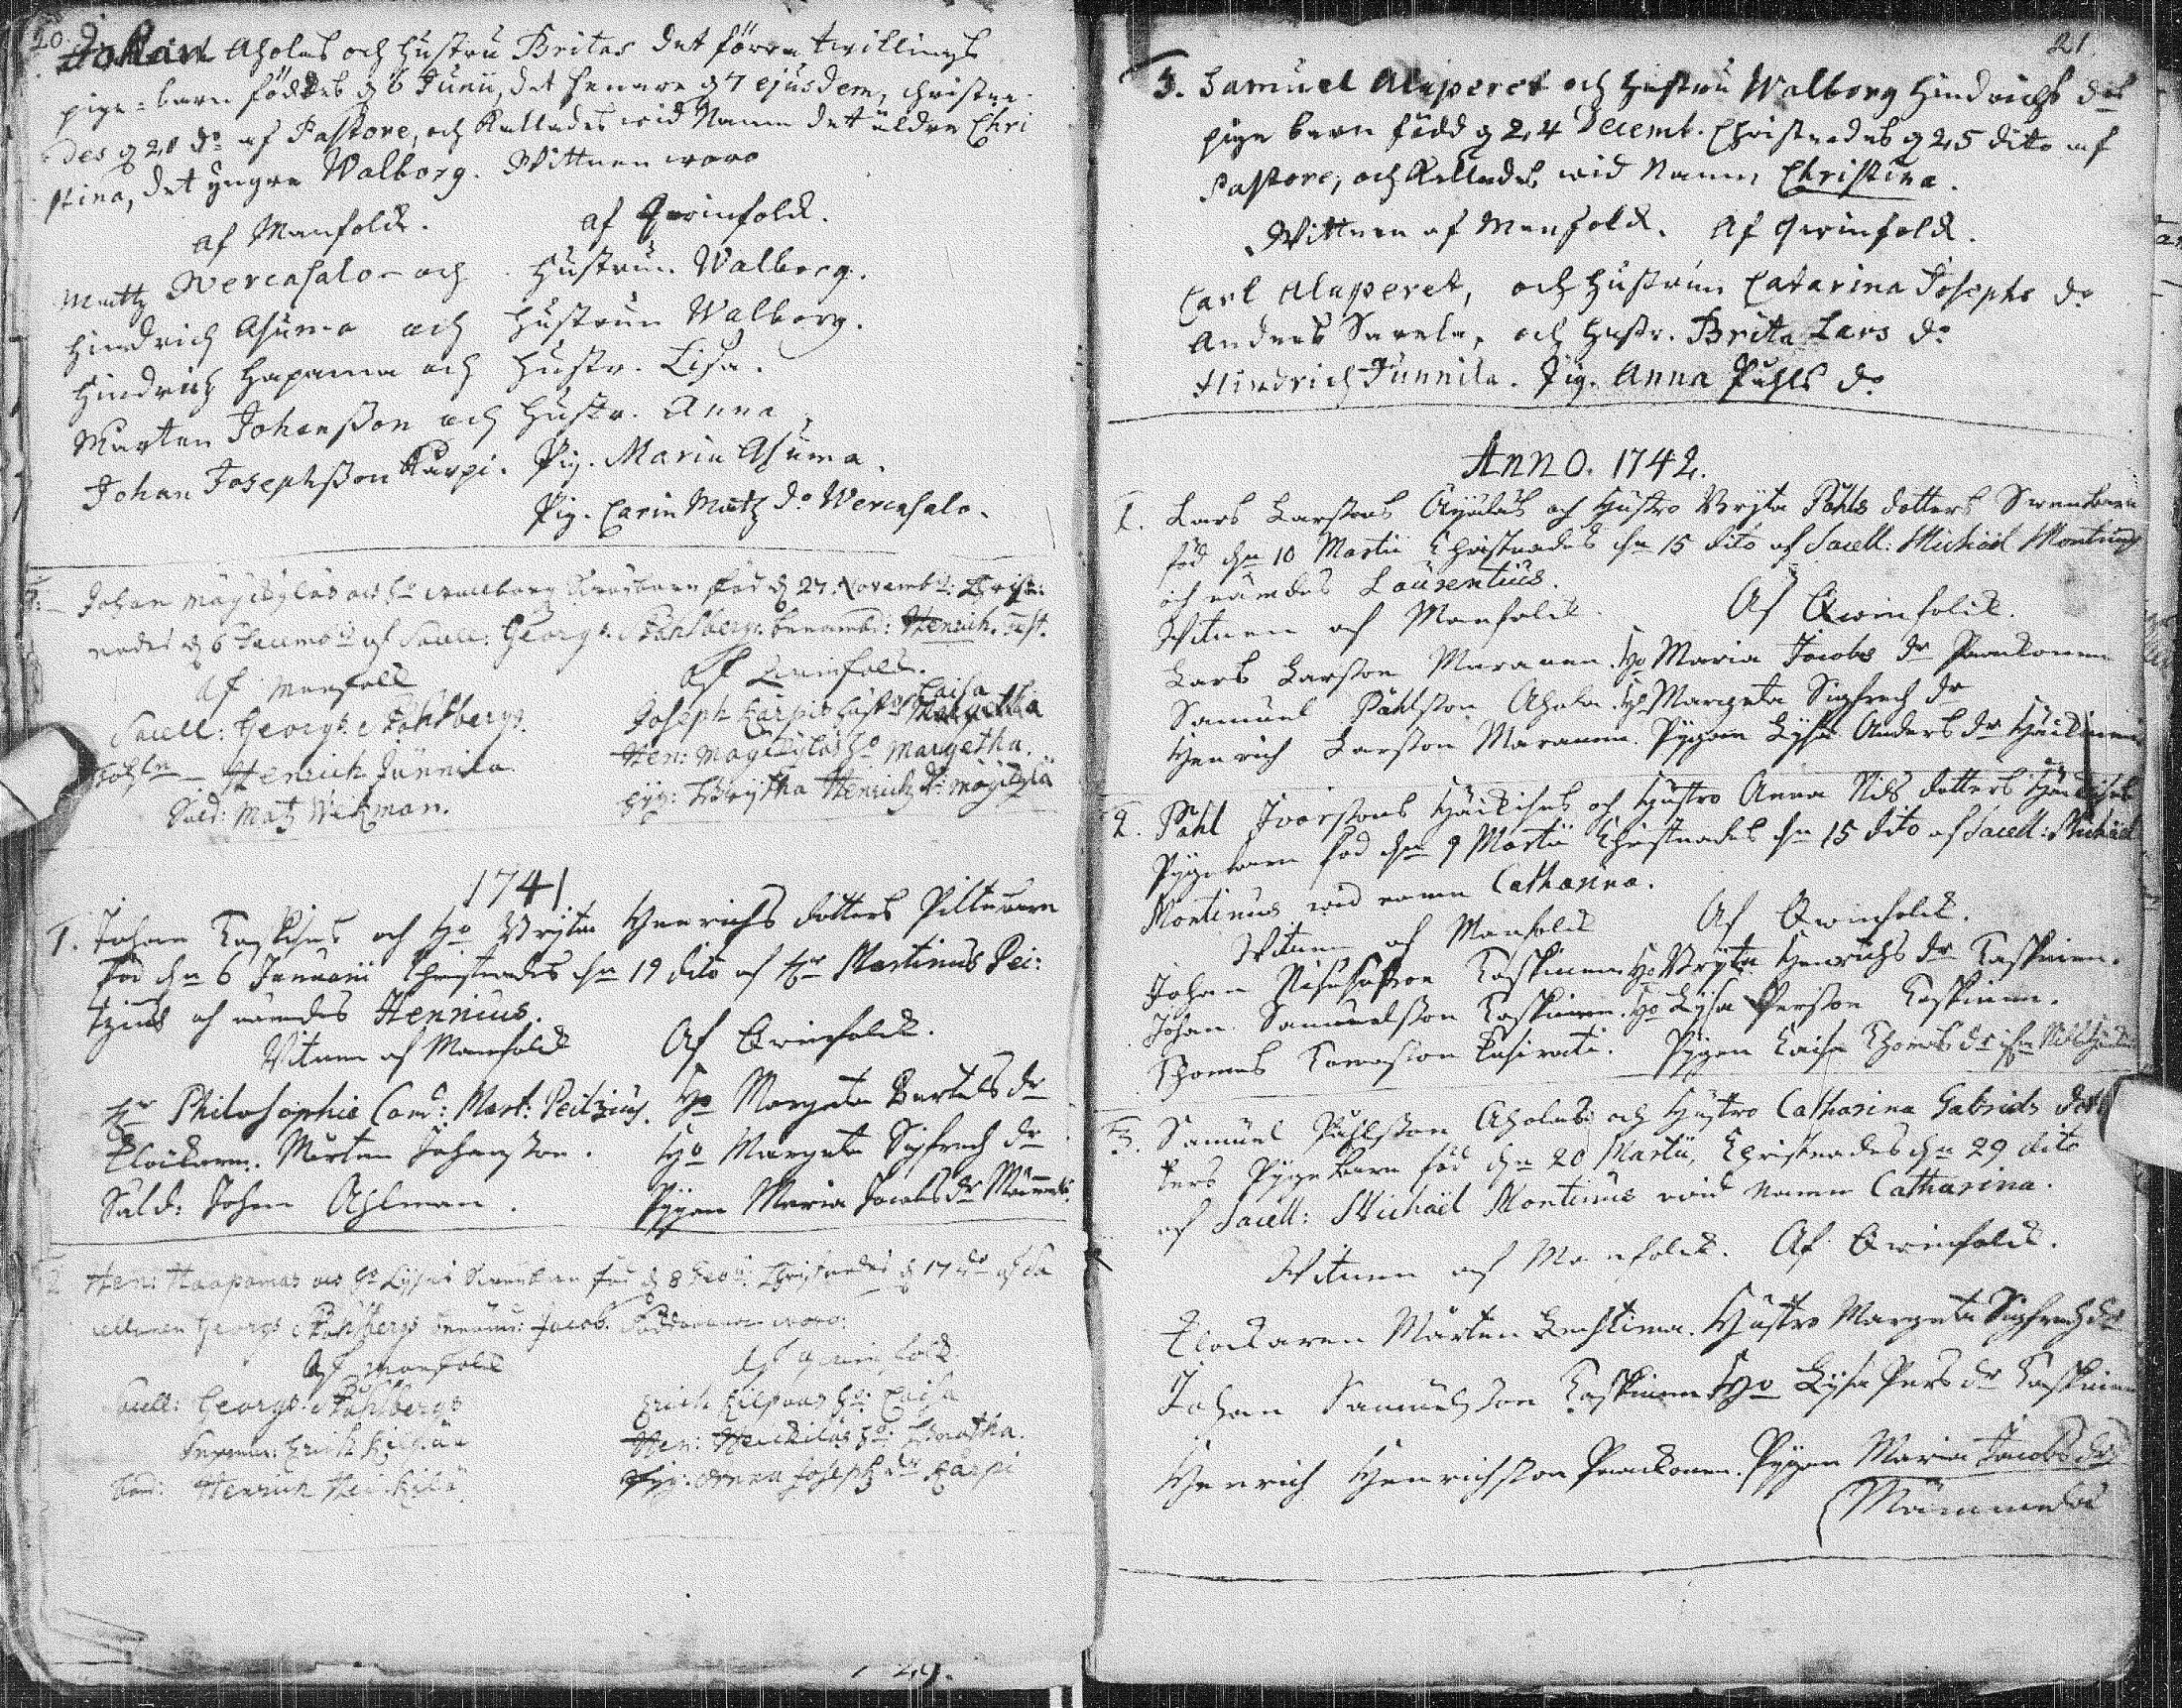 20.
Johan Aholas och hustru Britas det förra twillings
pige-barn föddes d 6 Junii, det senare d 7 ejusdem, christna-
des d 20 do af Pastore, och kallades wid Namn det äldre Chri
stina, det yngre Walborg. Wittnen woro
af Manfolck. af Qwinfolck.
Mattz Wercasalo och Hustrun Walborg.
Hindrich Asuma och Hustrun Walborg.
Hindrich Hapama och Hustr. Lisa.
Mårten Johansson och Hustr. Anna
Johan Josephsson Karpi. Pig. Maria Asuma.
Pig. Carin Matz do Wercasalo.
Johan Mägikyläs och ho Wallborg barn föd d 27. Novemb: Christ-
nades d 6 Decemb af Sacell: Georg: Ståhlberg. benämd: Henrich. Test.
Af Manfolk Af Qwinfolk.
Sacell: Georg: Ståhlberg. Joseph Karpis hustro Caisa
Henrich Junnila Hen: Mägikyläs ho Margetha.
Sold: Matz Wekman. Pig: Brijtha Henrichz dr Mägikylä
1741
1. Johan Kaskisus och ho Brÿta Henrichs dotters Piltebarn
föd den 6 Januarii Christnades den 19 dito af Hr Martinus Pei-
tzius och nämdes Hennius.
Witnen af Manfolck Af Qwinfolck.
Hr Philosophiæ Cand: Mart: Peitzius. Ho Margeta Bertels dr
Klockaren. Mårten Johansson. Ho Margeta Sigfredz dr
Sald: Johan Ahlman. Pÿgan Maria Jacobs dr
2 Hen: Haapamas och ho Lijsas Swenbarn föd d 8 Febr: Christnades d 17 do af Sa
cellanen Georg: Ståhlberg benämd: Jacob. Faddrarna woro:
Af Manfolck Af Qwinfolck
Sacell: Georg: Ståhlberg Erich Kilpoas ho: Caisa
Erich Kilpua Hen: Heickiläs ho:
Henrich Heickilä Pig: Anna Joseph dr Karpi
21.
3. Samuel Alaperet och Hustru Walborg Hindrichs dos
pige barn född d 24 Decemb. Christnades d 25 dito af
Pastore, och kallades wid Namn Christina.
Wittnen af Manfolck. Af Qwinfolck.
Carl Alaperet, och Hustrun Catarina Josephs do
Anders Sarela, och Hustr. Brita Lars do
Hindrich Junnila. Pig. Anna Påhls do
Anno. 1742.
1. Lars Larssons Äyäläs och Hustro Brÿta Påhls dotters Swenbarn
föd den 10 Martii Christnades den 15 dito af Sacell: Michaël Montinus
och nämdes Laurentius.
Witnen af Manfolck. Af Qwinfolck.
Lars Larsson Maranen. Ho Maria Jacobs dr Paakonen
Samuel Påhlsson Ahola. Ho Margeta Sigfredz dr
Henrich Larsson Maranen. Pÿgan Lÿsa Anders dr Häickinen
2. Påhl Ivarssons Häickises och Hustro Anna Nils dotters Häickises
Pÿgebarn föd den 9 Martii Christnades den 15 dito af Sacell: Michaël
Montinus wid namn Catharina.
Witnen af Manfolck Af Qwinfolck.
Johan Kaskinen Ho Brÿta Henrichs dr Kaskinen.
Johan Samuelsson Kaskinen. Ho Lÿsa Persson Kaskinen.
Thomas Tomasson. Pÿgan Caisa Thomas dr
3. Samuel Påhlsson Aholas och Hustro Catharina Gabriels dot
ters Pÿgebarn föd den 20 Martii, Christnades den 29 dito
af Sacell: Michaël Montinus wid namn Catharina.
Witnen af Manfolck. Af Qwinfolck.
Klockaren Mårten Leistima. Hustro Margeta Sigfredz dr
Johan Samuelsson Kaskinen Ho Lÿsa Pers dr Kaskinen
Henrich Henrichsson Paakonen. Pÿgan Maria Jacobs dr